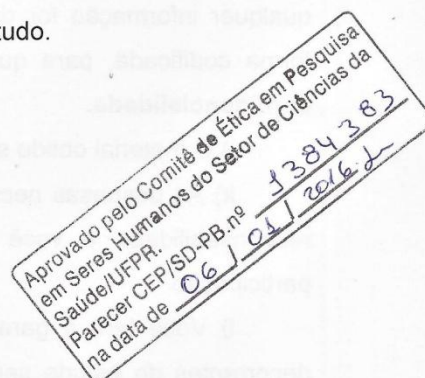 tudo.
Aprovado pelo Comitê de Ética em Pesquisa
em Seres Humanos do Setor de Ciências da
Saúde/UFPR.
Parecer CEP/SD-PB.nº 1384383
na data de 06 / 01 / 2016.